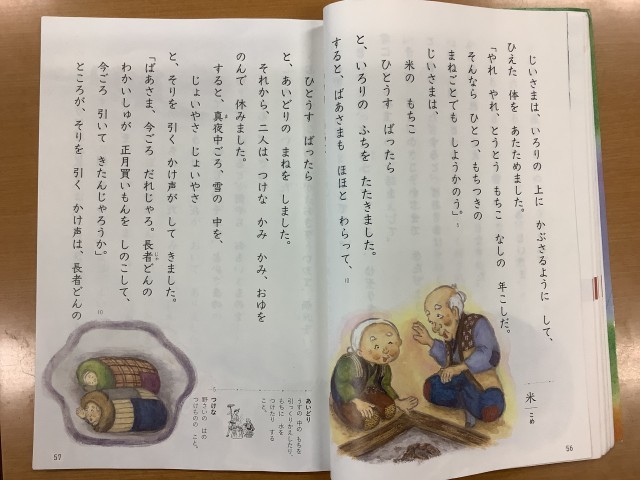 じいさまは、いろりの 上に かぶさるように して、
ひえた 体を あたためました。
「やれ やれ、とうとう もちこ なしの 年こしだ。
そんなら ひとつ、もちつきの
まねごとでも しようかのう」。
じいさまは、
米の もちこ
ひとうす ばったら
と、いろりの ふちを たたきました。
すると、ばあさまも ほほと わらって、
10
米 こめ
56
ひとうす ばったら
と、あいどりの まねを しました。
それから、二人は、つけな かみ かみ、おゆを
のんで 休みました。
すると、真夜中ごろ、雪の 中を、
ま
じょいやさ じょいやさ
と、そりを 引く かけ声が して きました。
「ばあさま、今ごろ だれじゃろ。長者どんの
じゃ
わかいしゅが 正月買いもんを しのこして、
今ごろ 引いて きたんじゃろうか。」
ところが、そりを 引く かけ声は、長者どんの
5
10
あいどり
うすの 中の もちを
引っくりかえしたり、
もちに 水を
つけたり する
こと。
つけな
野さいの はの
つけものの こと。
57